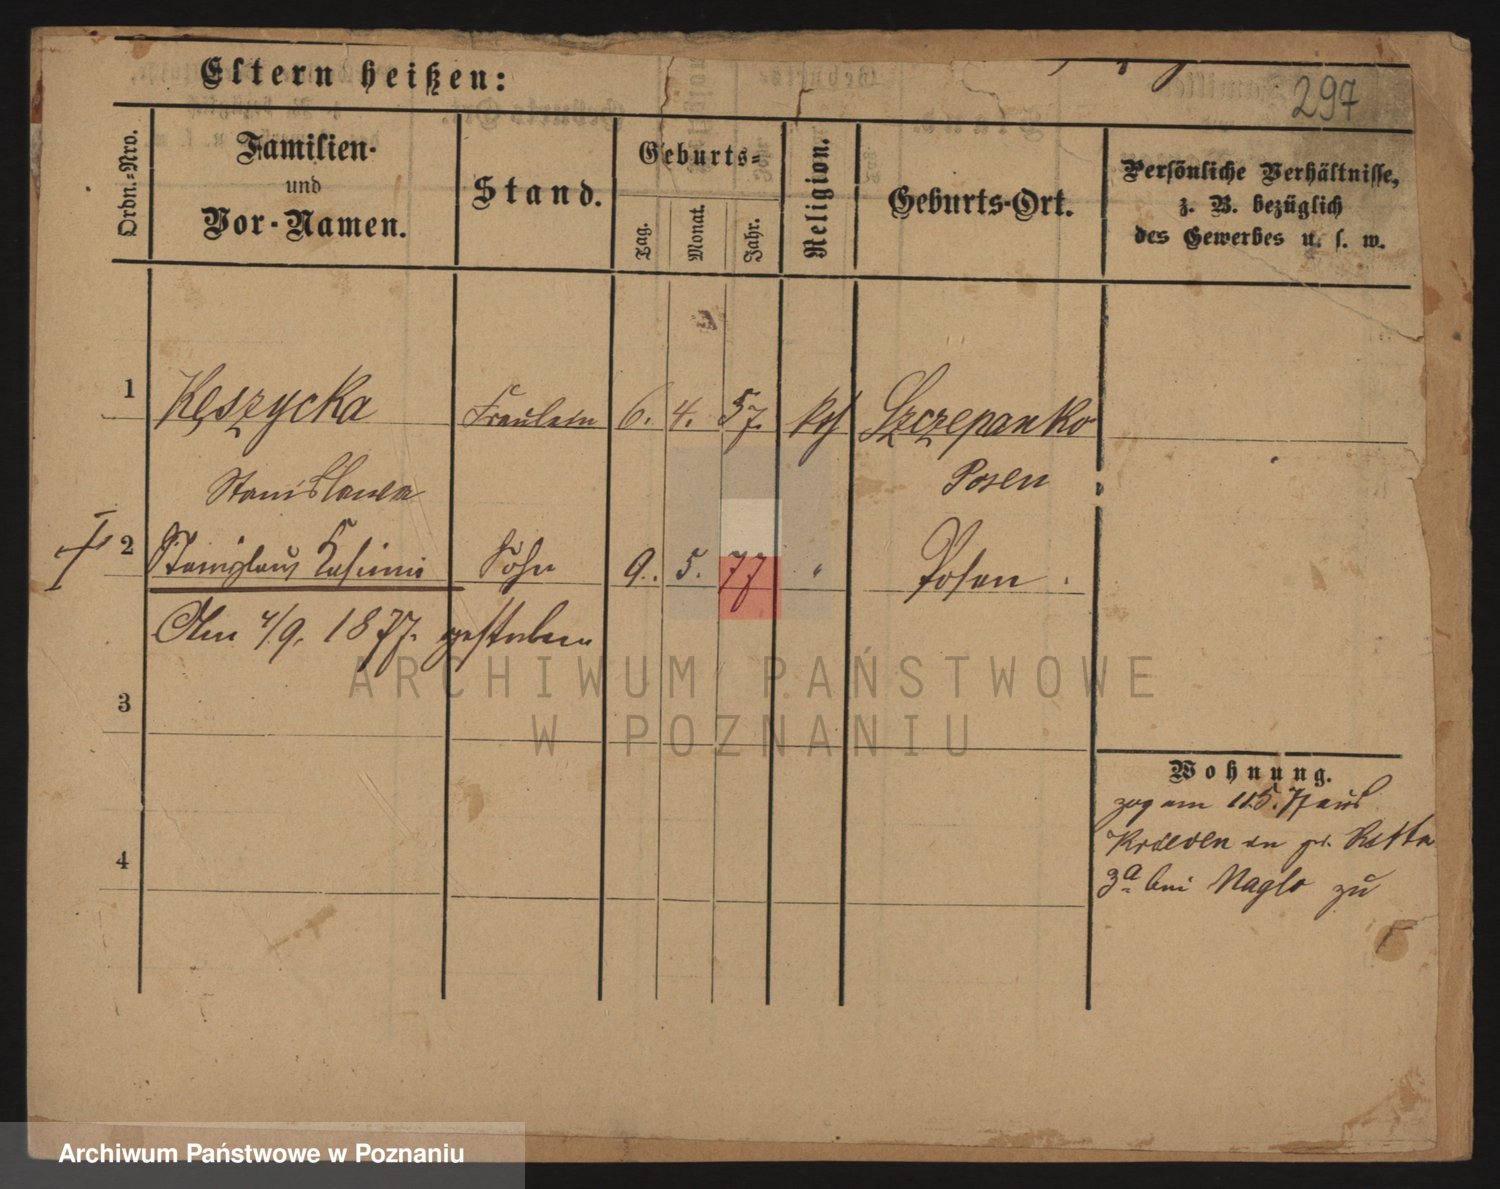 297
Eltern heißen:
Ordn.-Nro.
Familien-
und
Vor-Namen.
Stand.
Geburts-
Tag.
Monat.
Jahr.
Religion.
Geburts-Ort.
Persönliche Verhältnisse,
z. B. bezüglich
des Gewerbes u. s. w.
1 Kęszycka Fräulein 6. 4. 57. kth Szczepanko
Stanislawa Posen
2 Stanislaus Kasimir Sohn 9. 5. 77 " Posen.
Am 4/9. 1877. gestorben
3
4
Wohnung.
zog am 115. 77 aus
Kröeven in gr. Ritter
3a bei Naglo zu
ARCHIWUM PAŃSTWOWE
W POZNANIU
Archiwum Państwowe w Poznaniu